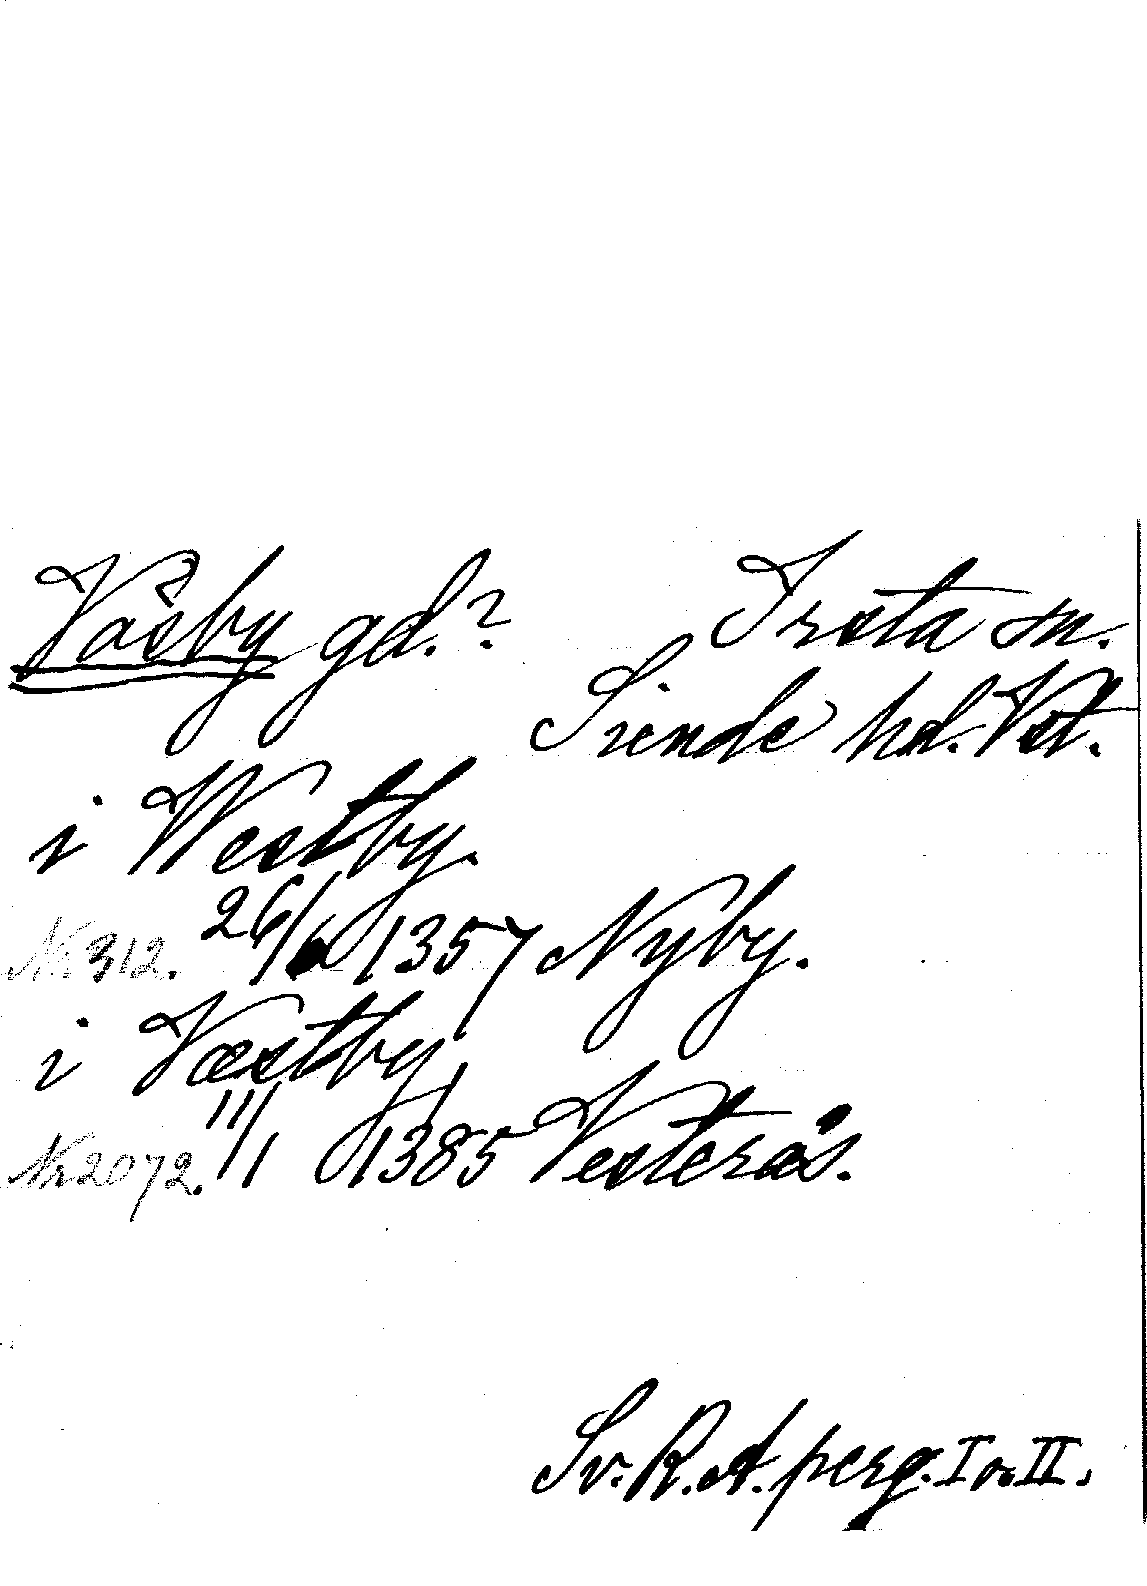 Väsby gd.? Irsta sn.
Siende hd. Vst.
i Westby.
Nr 312. 26/6 1357 Nyby.
i Væstby,
Nr 2072. 11/1 1385 Vesterås.
Sv. R. A. perg. I o. II.